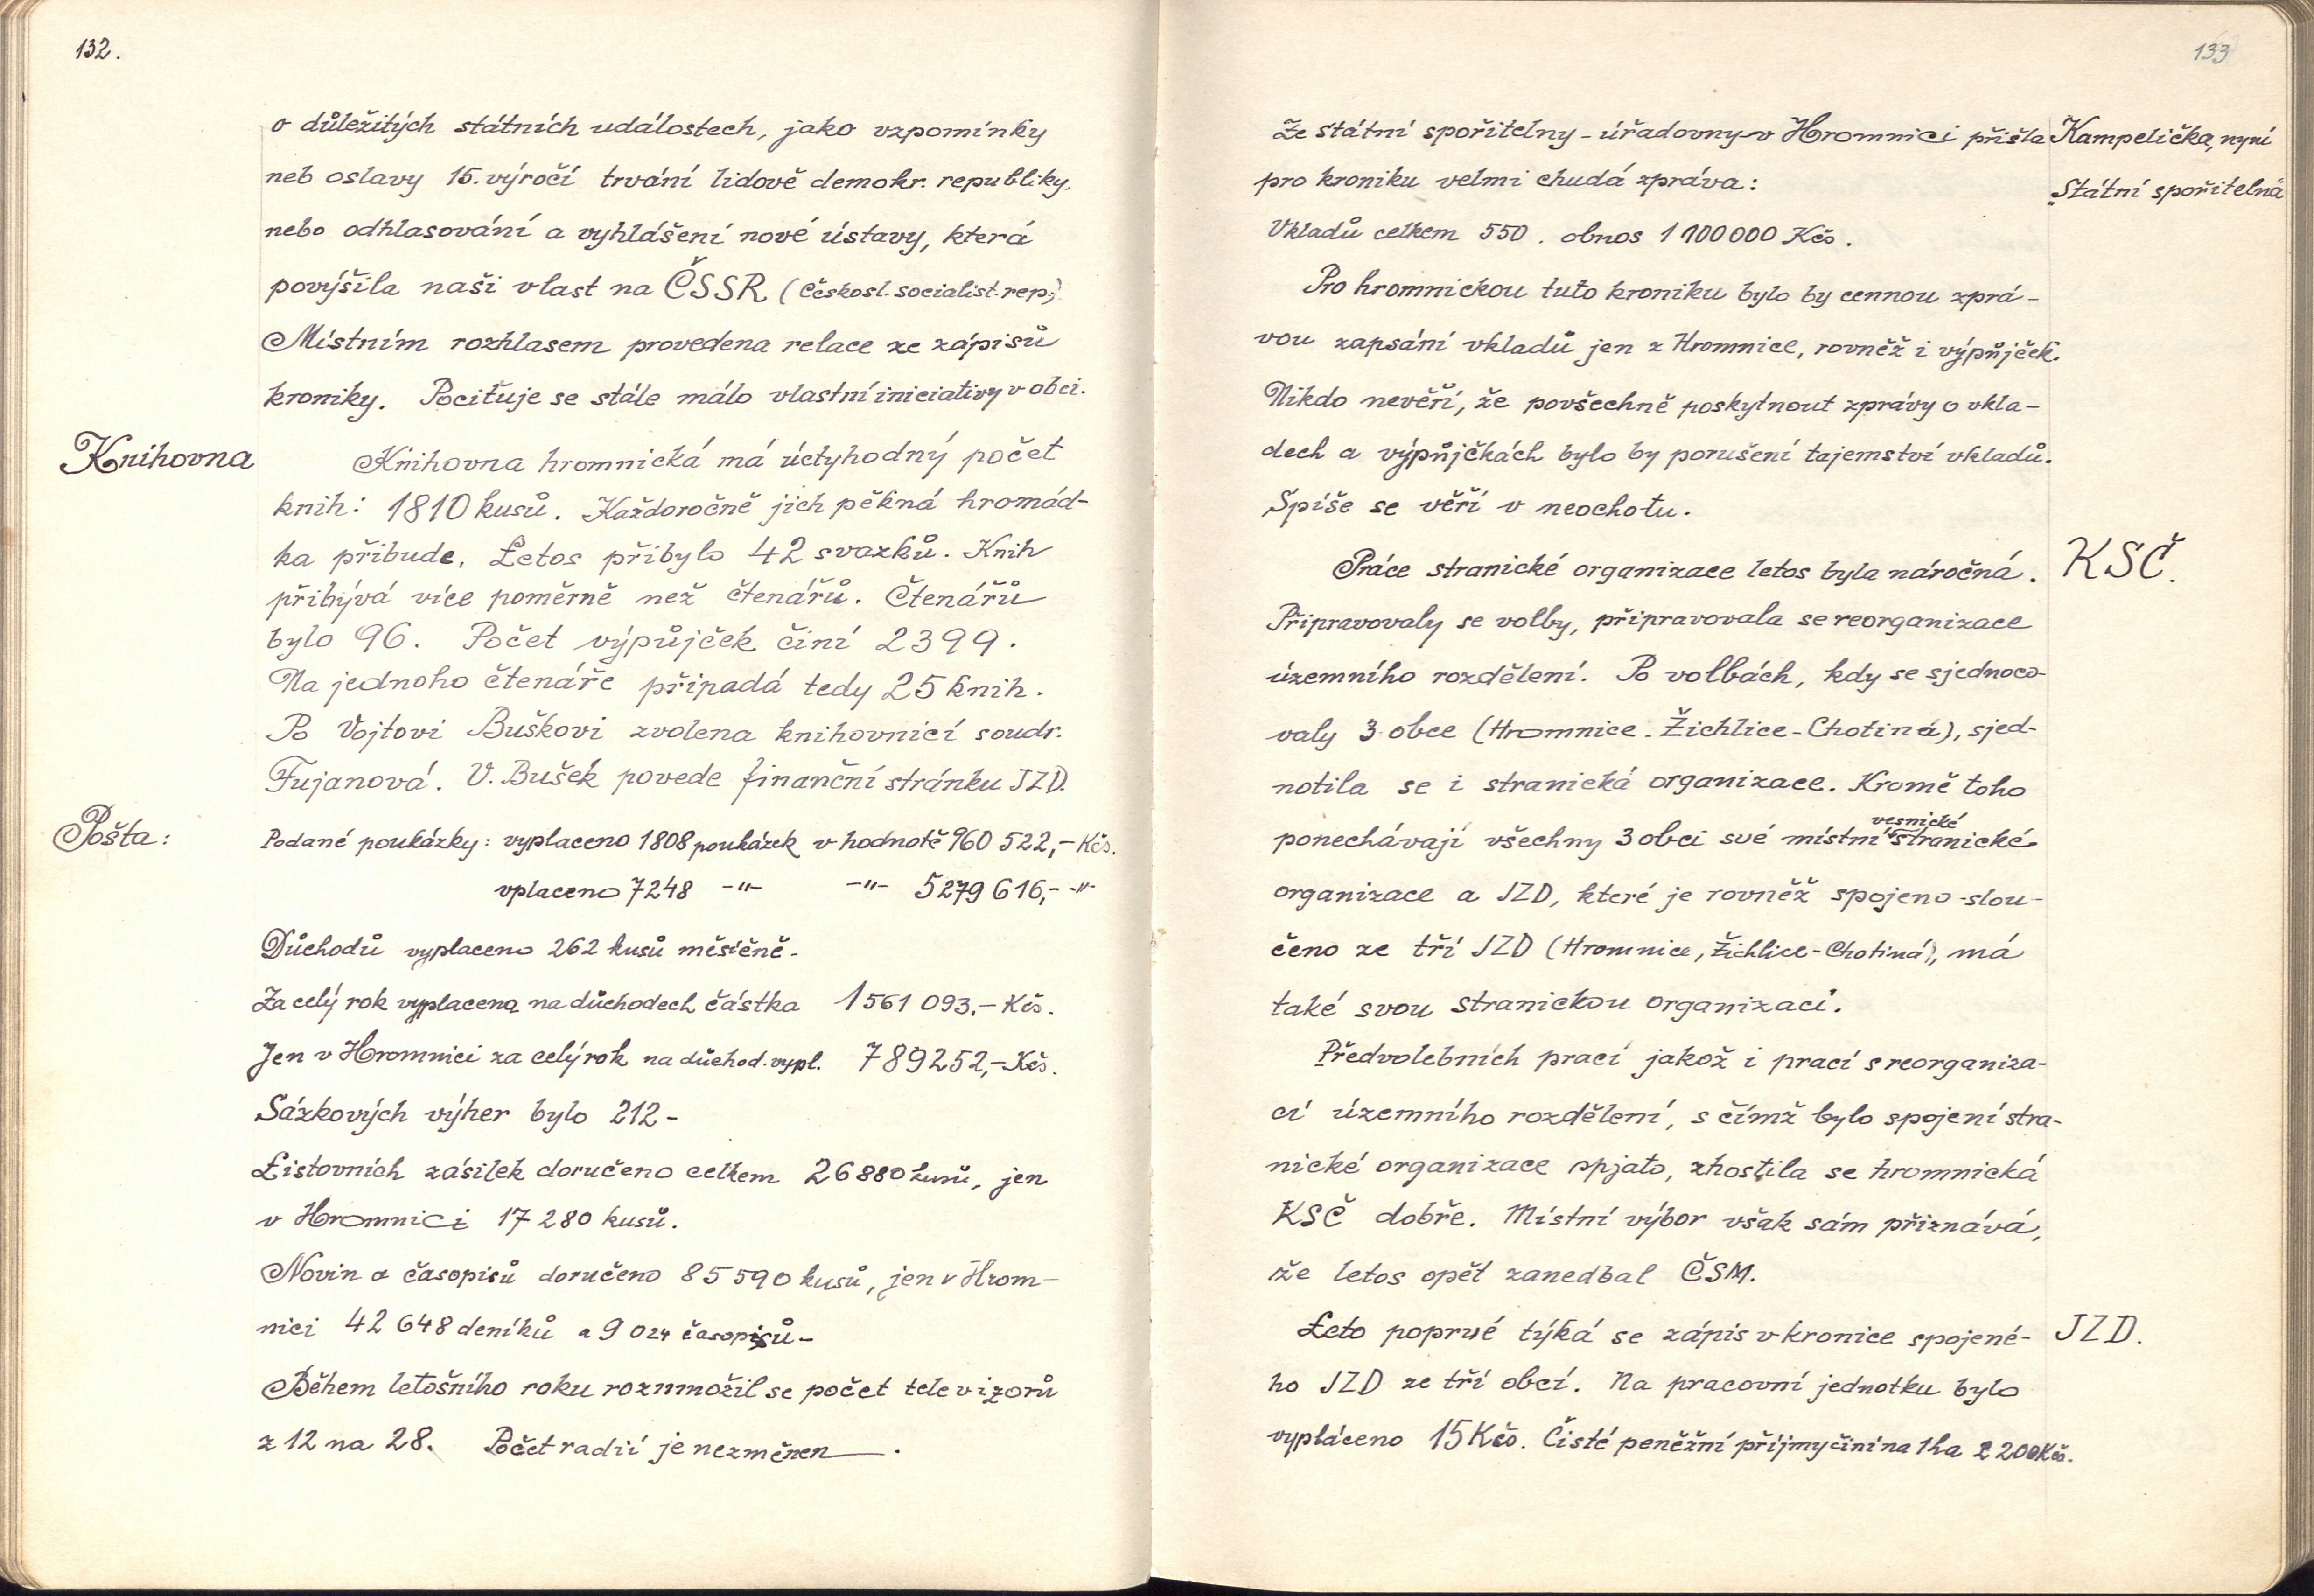 132.
o důležitých státních událostech, jako vzpomínky
neb oslavy 15. výročí trvání lidově demokr. republiky,
nebo odhlasování a vyhlášení nové ústavy, která
povýšila naši vlast na ČSSR (Českosl. socialist. rep.).
Místním rozhlasem provedena relace ze zápisů
kroniky. Pociťuje se stále málo vlastní iniciativy v obci.
Knihovna
Knihovna hromnická má úctyhodný počet
knih: 1810 kusů. Každoročně jich pěkná hromád-
ka přibude. Letos přibylo 42 svazků. Knih
přibývá více poměrně než čtenářů. Čtenářů
bylo 96. Počet výpůjček činí 2399.
Na jednoho čtenáře připadá tedy 25 knih.
Po Vojtovi Buškovi zvolena knihovnicí soudr.
Fujanová. V. Bušek povede finanční stránku JZD.
Pošta:
Podané poukázky: vyplaceno 1808 poukázek v hodnotě 960 522,- Kčs.
vplaceno 7248 -"- -"- 5279 616,- -"-
Důchodů vyplaceno 262 kusů měsíčně -
Za celý rok vyplacena na důchodech částka 1 561 093.- Kčs.
Jen v Hromnici za celý rok na důchod. vypl. 789252,- Kčs.
Sázkových výher bylo 212 -
Listovních zásilek doručeno celkem 26 880 kusů, jen
v Hromnici 17 280 kusů.
Novin a časopisů doručeno 85 590 kusů, jen v Hrom-
nici 42 648 deníků a 9 024 časopisů -
Během letošního roku rozmnožil se počet televizorů
z 12 na 28. Počet radií je nezměněn.
133
Ze státní spořitelny - úřadovny v Hromnici přišla
Kampelička, nyní
pro kroniku velmi chudá zpráva:
Státní spořitelna
Vkladů celkem 550. obnos 1 100 000 Kčs.
Pro hromnickou tuto kroniku bylo by cennou zprá-
vou zapsání vkladů jen z Hromnice, rovněž i výpůjček.
Nikdo nevěří, že povšechně poskytnout zprávy o vkla-
dech a výpůjčkách bylo by porušení tajemství vkladů.
Spíše se věří v neochotu.
KSČ.
Práce stranické organizace letos byla náročná.
Připravovaly se volby, připravovala se reorganizace
územního rozdělení. Po volbách, kdy se sjednoco-
valy 3 obce (Hromnice - Žichlice - Chotiná), sjed-
notila se i stranická organizace. Kromě toho
vesnické
ponechávají všechny 3 obci své místní stranické
organizace a JZD, které je rovněž spojeno - slou-
čeno ze tří JZD (Hromnice, Žichlice - Chotiná), má
také svou stranickou organizaci.
Předvolebních prací jakož i prací s reorganiza-
cí územního rozdělení, s čímž bylo spojení stra-
nické organizace spjato, zhostila se hromnická
KSČ dobře. Místní výbor však sám přiznává,
že letos opět zanedbal ČSM.
JZD.
Leto poprvé týká se zápis v kronice spojené-
ho JZD ze tří obcí. Na pracovní jednotku bylo
vypláceno 15 Kčs. Čisté peněžní příjmy činí na 1 ha 2 200 Kčs.